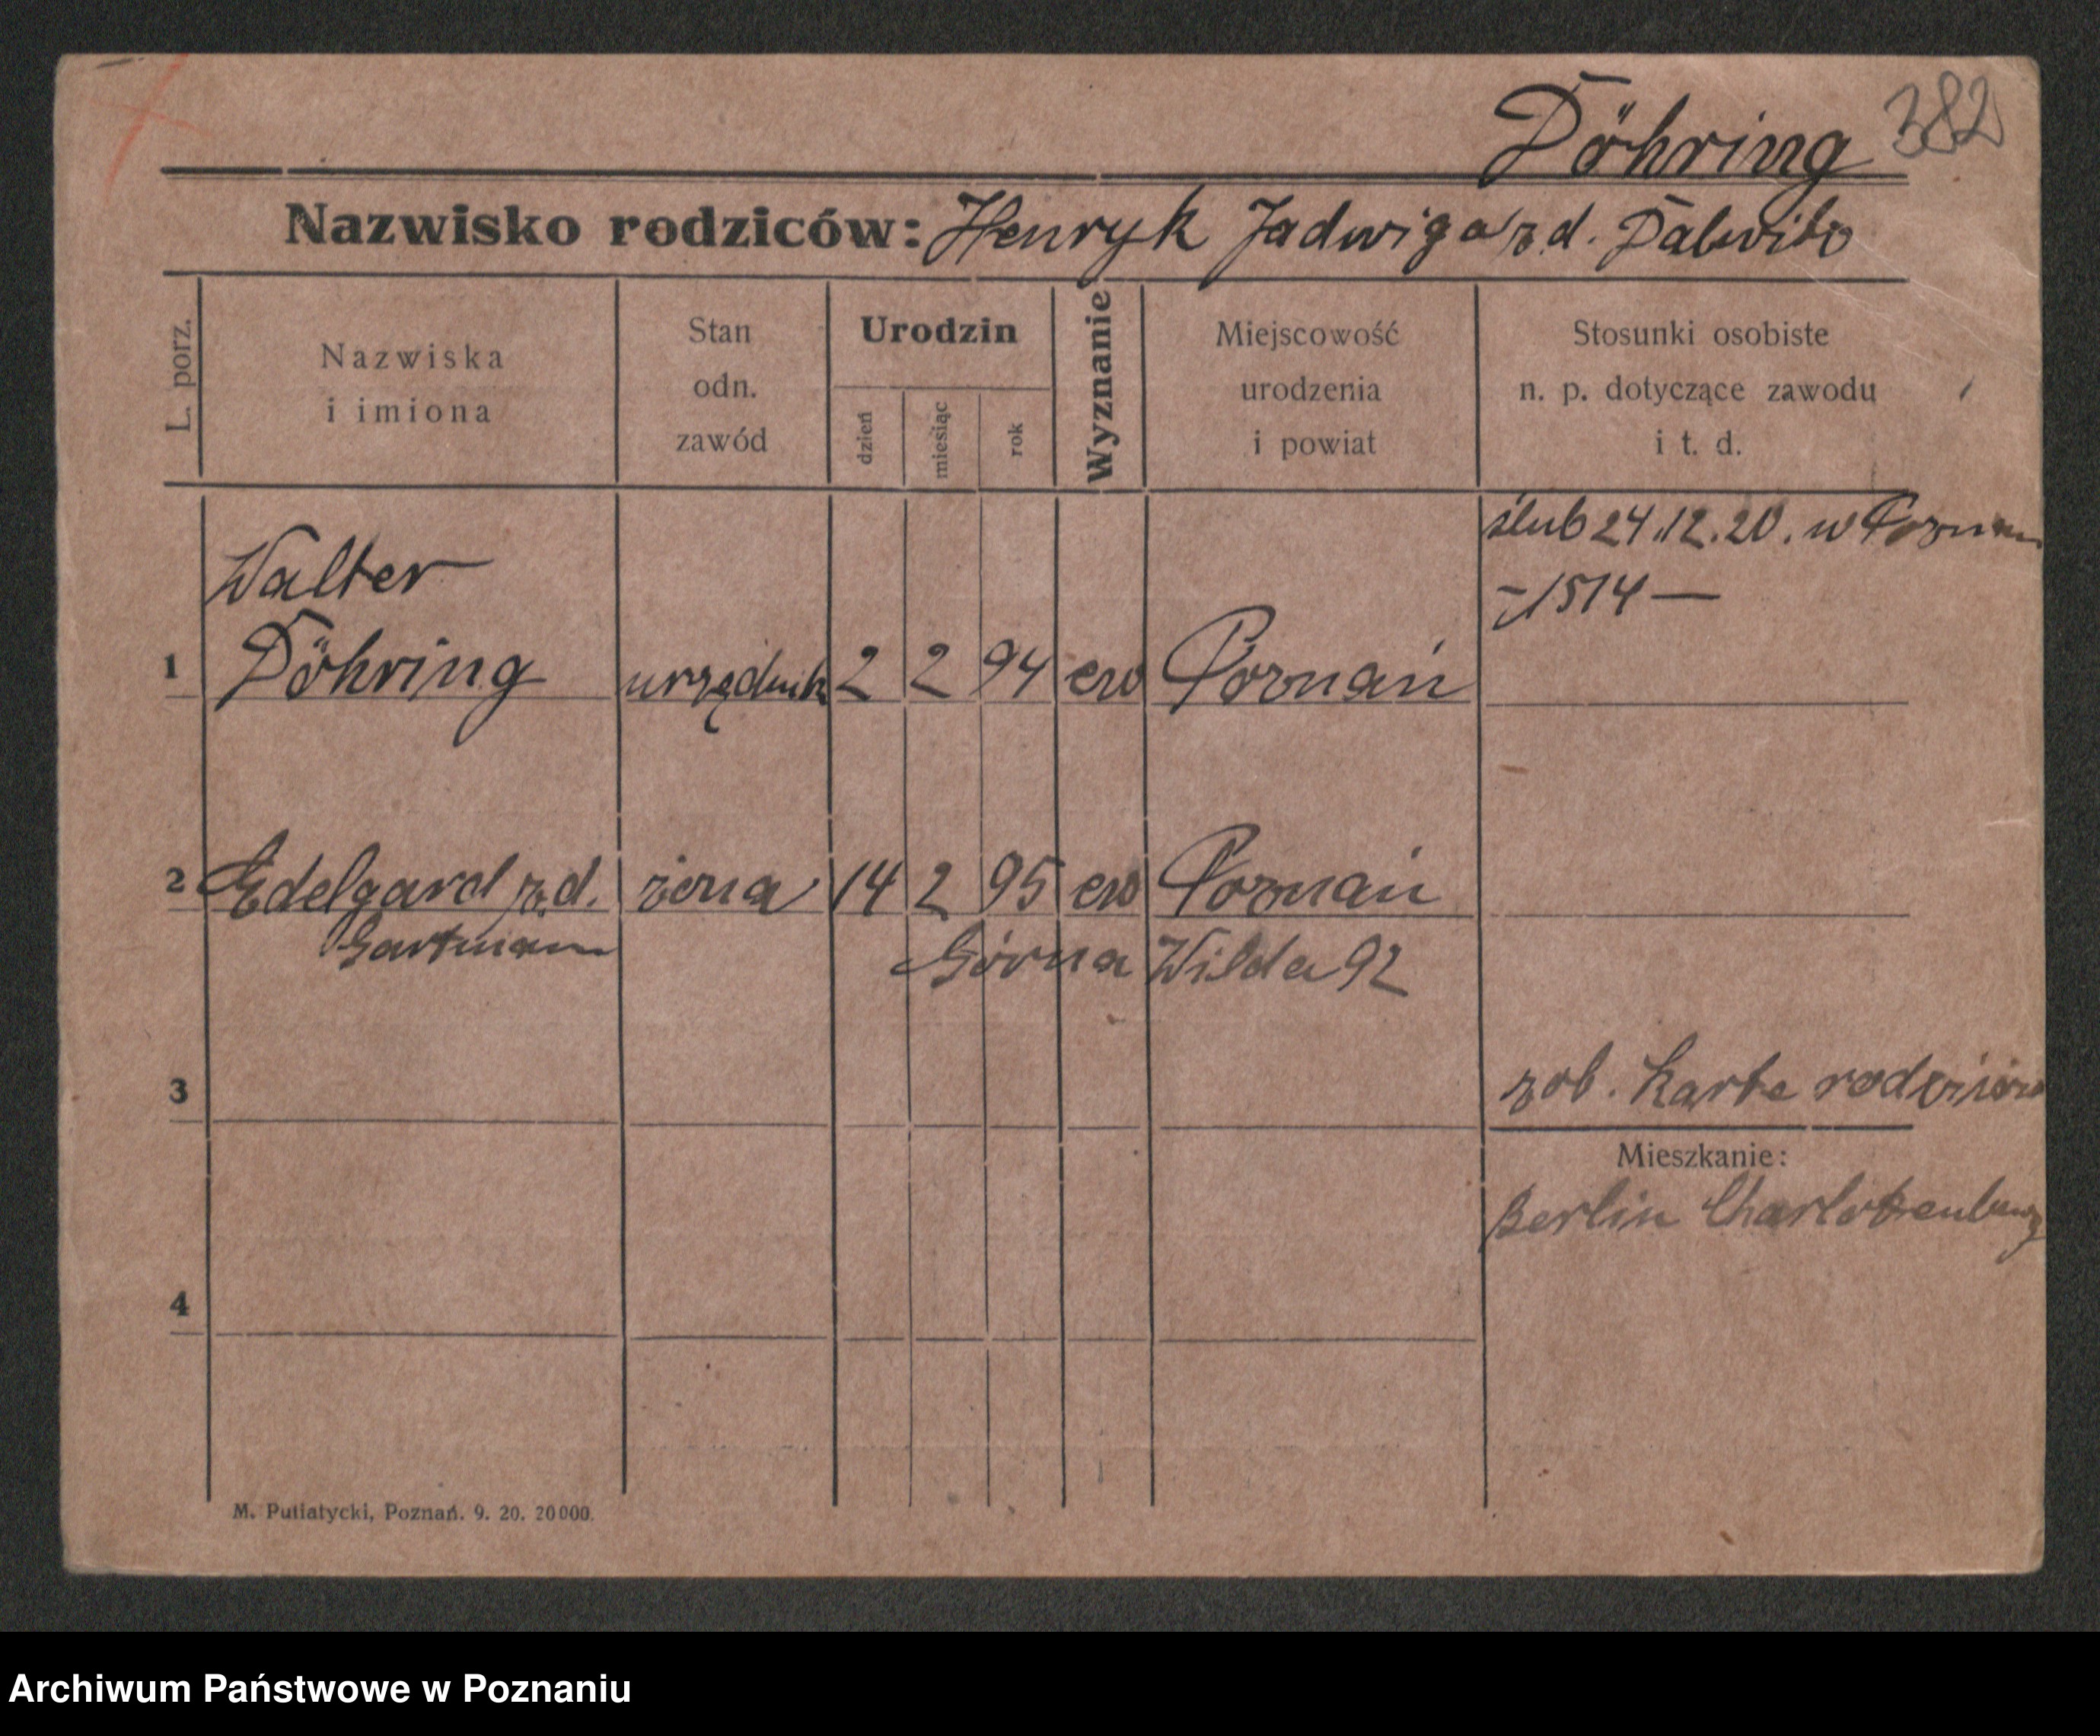 Döhring 382
Nazwisko rodziców: Henryk Jadwiga z d.
L. porz.
Nazwiska
i imiona
Stan
odn.
zawód
Urodzin
dzień
miesiąc
rok
Wyznanie
Miejscowość
urodzenia
i powiat
Stosunki osobiste
n. p. dotyczące zawodu
i t. d.
ślub 24.12.20. w Poznan
-1514-
Walter
1 Döhring urzędnik 2 2 94 ew Poznań
2 Edelgard z d. żona 14 2 95 ew Poznań
Gartmann
Górna Wilda 92
3
zob. Karta rodziców
Mieszkanie:
Berlin Charlottenburg
4
M. Putiatycki, Poznań. 9. 20. 20000.
Archiwum Państwowe w Poznaniu